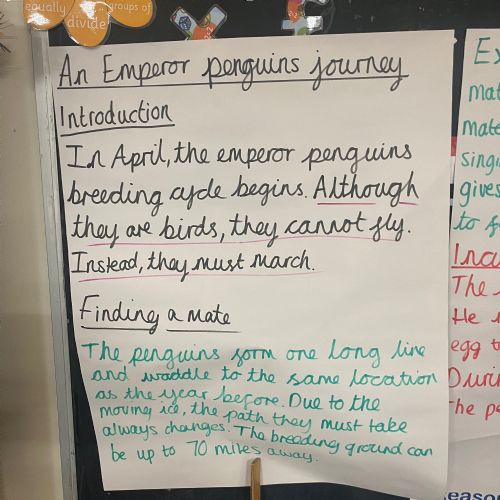 equally
groups of
divide
An Emperor penguins journey
Introduction
In April, the emperor penguins
breeding cycle begins. Although
they are birds, they cannot fly.
Instead, they must march.
Finding a mate
The penguins form one long line
and waddle to the same location
as the year before. Due to the
moving ice, the path they must take
always changes. The breeding ground can
be up to 70 miles away.
mate
singi
gives
to f
The
He
egg t
Duri
The pe